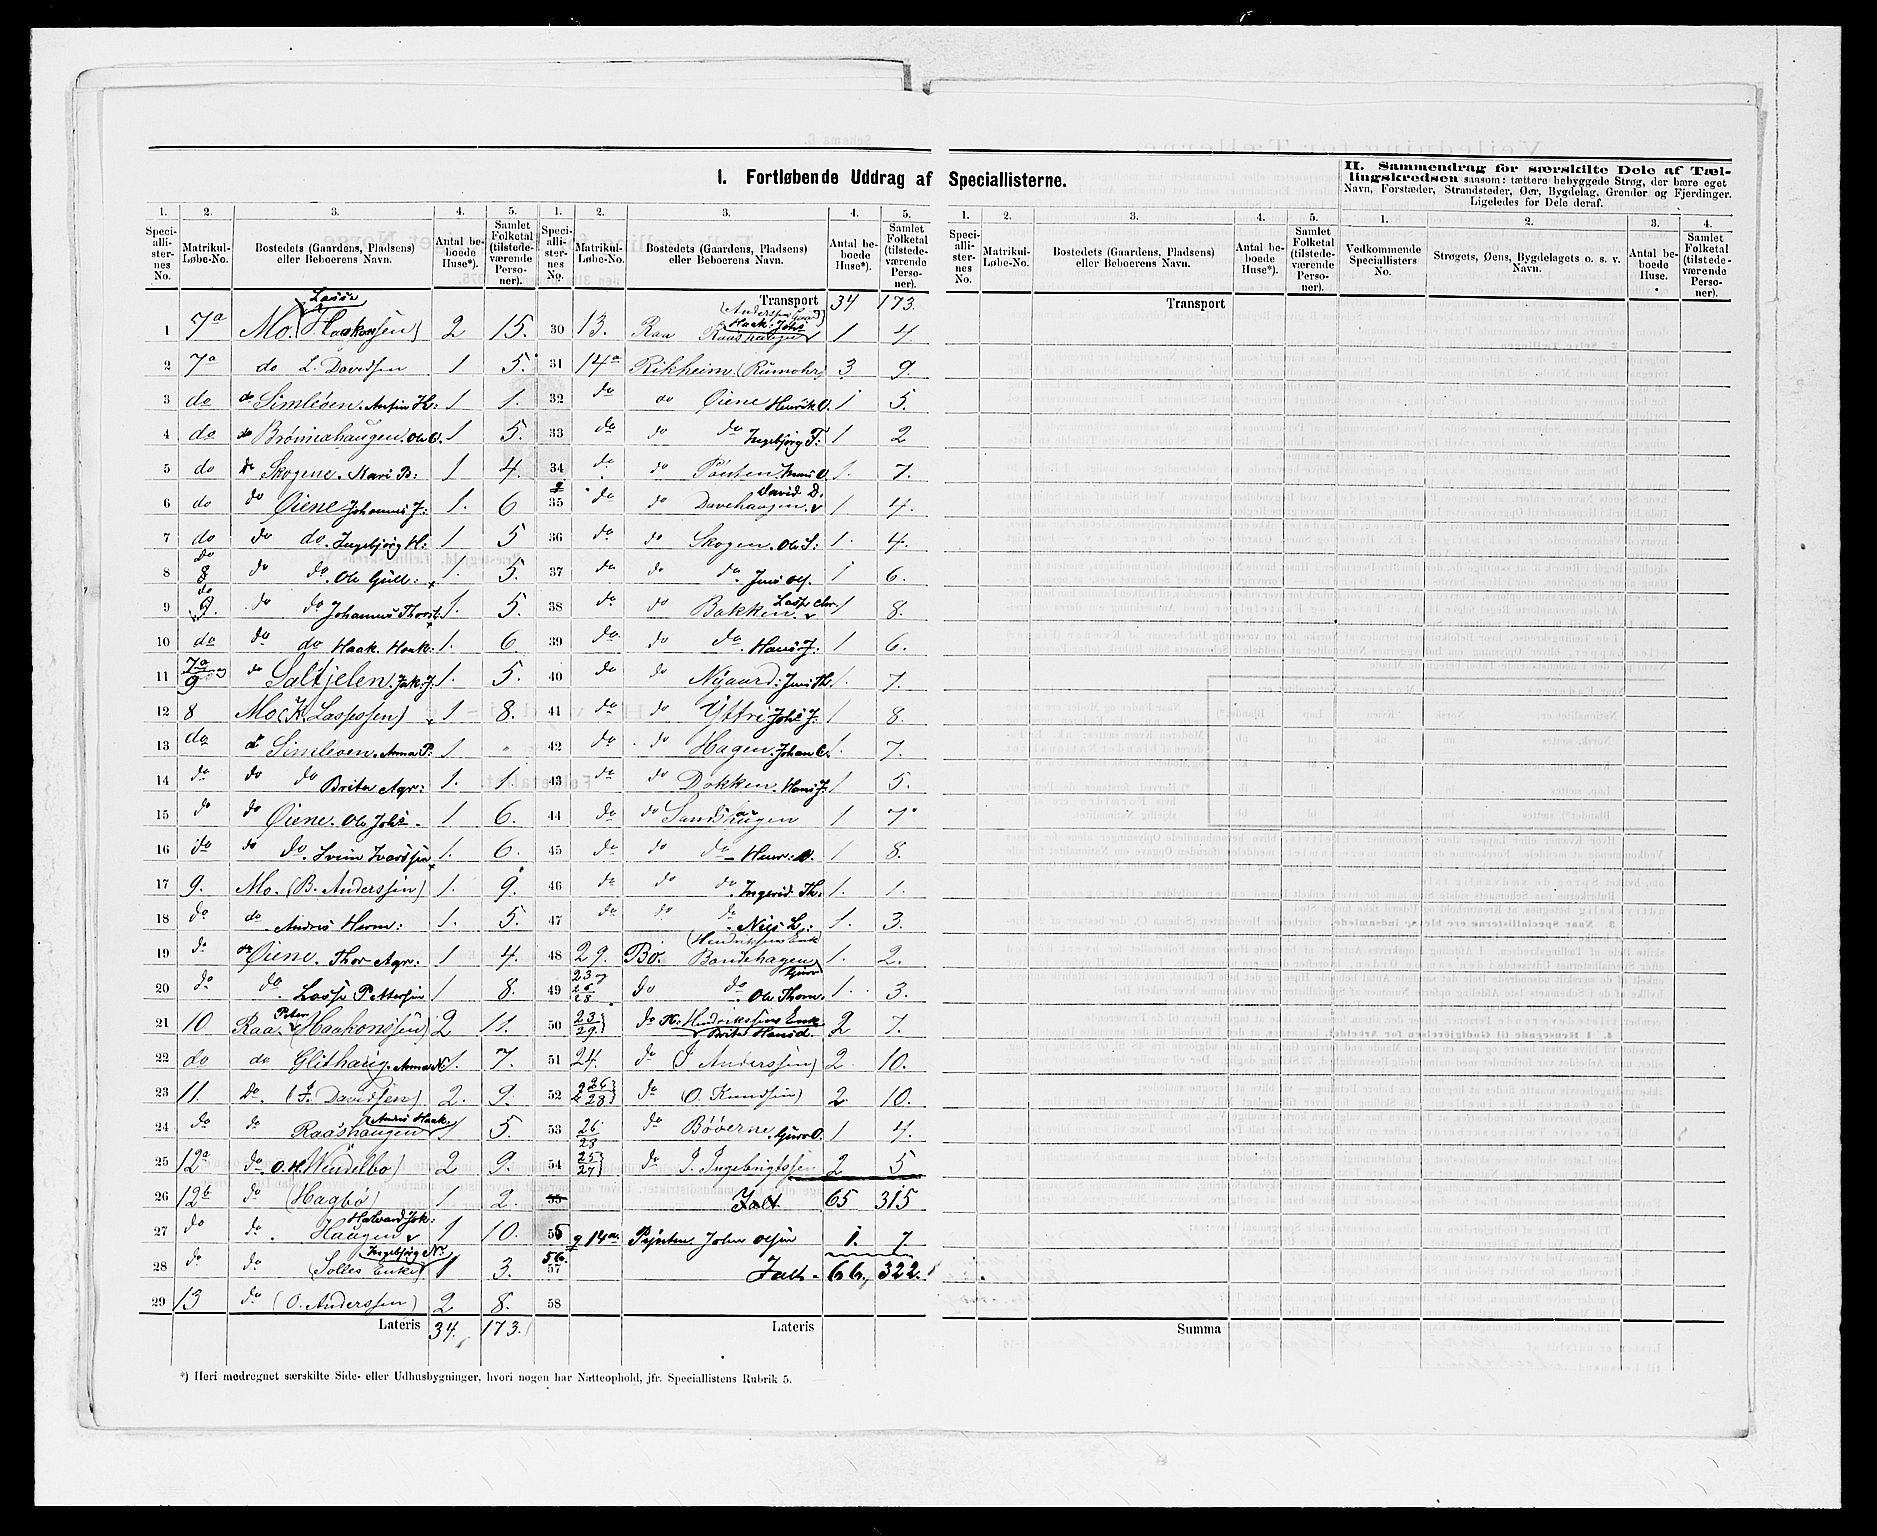 I. Fortløbende Uddrag af Speciallisterne.
II. Sammendrag for særskilte Dele af Tællingskredsen saasom: tættere bebyggede Strøg, der bære eget Navn, Forstæder, Strandsteder, Øer, Bygdelag, Grender og Fjerdinger. Ligeledes for Dele deraf.
1. 2. 3. 4. 5. 1. 2. 3. 4. 5. 1. 2. 3. 4. 5. 1. 2. 3. 4.
Speciallisternes No. Matrikul-Løbe-No. Bostedets (Gaardens, Pladsens) eller Beboerens Navn. Antal beboede Huse*). Samlet Folketal (tilstedeværende Personer).
Speciallisternes No. Matrikul-Løbe-No. Bostedets (Gaardens, Pladsens) eller Beboerens Navn. Antal beboede Huse*). Samlet Folketal (tilstedeværende Personer).
Speciallisternes No. Matrikul-Løbe-No. Bostedets (Gaardens, Pladsens) eller Beboerens Navn. Antal beboede Huse*). Samlet Folketal (tilstedeværende Personer).
Vedkommende Speciallisters No. Strøgets, Øens, Bygdelagets o. s. v. Navn. Antal beboede Huse. Samlet Folketal (tilstedeværende Personer).
1 7a Mo. (Lasse Haakonsen) 2 15.
2 7a do L. Davidsen 1 5.
3 do do Simleøen. H: 1 1.
4 do do Brønnahaugen. Ole O. 1 5.
5 do do Skogene. Kari B: 1 4.
6 do do Øiene Johannes J: 1. 6
7 do do do. Ingebjørg H: 1 5
8 do 8 do do. Ole Gull: 1. 5.
9 do 9. do do Johannes Thorst: 1. 5.
10 do do do Haak. Haak: 1. 6
11 7a og 9 do Saltjelen. Jak. J. 1. 5.
12 8 Mo (K. Lassessen) 1 8.
13 do do Simleøen. Anna P: 1 "
14 do do do Brita Agr: 1. 1.
15 do do Øiene. Ole Johs. 1 6.
16 do do do. Svein Ivarssen 1. 6.
17 9. Mo. (B. Anderssen) 1. 9.
18 do do Andres Herm: 1. 5.
19 do do Øiene. Thor Agr: 1 4.
20 do do. Lasse Pettersen 1 8.
21 10 Raa. (Peter Haakonssen) 2 11.
22 do do Glitharig. Anna N. 1. 7.
23 11. do. (J. Davidsen) 2. 9.
24 do do Raashaugen Andres Haak. 1 5.
25 12a do. O. H. Wendelbo) 2 9.
26 12b do (Hagbø) 1 2.
27 do do. Haugen Halvard Jok: 1 10.
28 do do (Solles Enke) Ingebjørg N. 1 3.
29 13 do (O. Anderssen) 2 8.
Lateris 34. 173.
Transport 34 173.
30 13. Raa Raashaugen (Anderssen Haak. Johs 1 4.
31 14a Rikheim. (Rumohr) 3 9.
32 do do Øiene Henrik O. 1 5.
33 do do do Ingebjørg T: 1 2
34 do do O. 1. 7.
35 do do Davehaugen David D. 1 4.
36 do do Skogen. Ole S: 1. 4.
37 do do do. Jens Ol. 1 6.
38 do do Bakken. Lasse Chr. 1 8.
39 do. do do. Hans J: 1 6.
40 do do Nygaard: Jens Th. 1. 7.
41 do do Yttri Johs J. 1 8.
42 do do Hagen. Johan C. 1. 7.
43 do do Dokken. Hans J. 1 5.
44 do do Sandhaugen 1 7
45 do do do. Henr: O. 1 8.
46 do do do. Ingerid Th: 1. 1.
47 do do do. Nils L: 1. 3.
48 29. Bø. Bandehagen (Hendriksens Enke Guro 1. 2.
49 23 og 26 28 do do. Ole Thom. 1. 3.
50 23 29. do H. Hendrikssens Enke Brita Hansd. 2 7.
51 24. do (J Anderssen) 2 10.
52 26 28 do (O. Knudsen) 2. 10.
53 26 28 do Bøverne. Guro O. 1 4.
54 25 27 do J. Ingebrigtssen 2 5
55 Ialt 65 315
56 9 14a Pynten John Olsen 1. 7.
56. 57 Ialt - 66, 322.
58
Lateris
Transport
Summa
*) Heri medregnet særskilte Side- eller Udhusbygninger, hvori nogen har Natteophold, jfr. Speciallistens Rubrik 5.